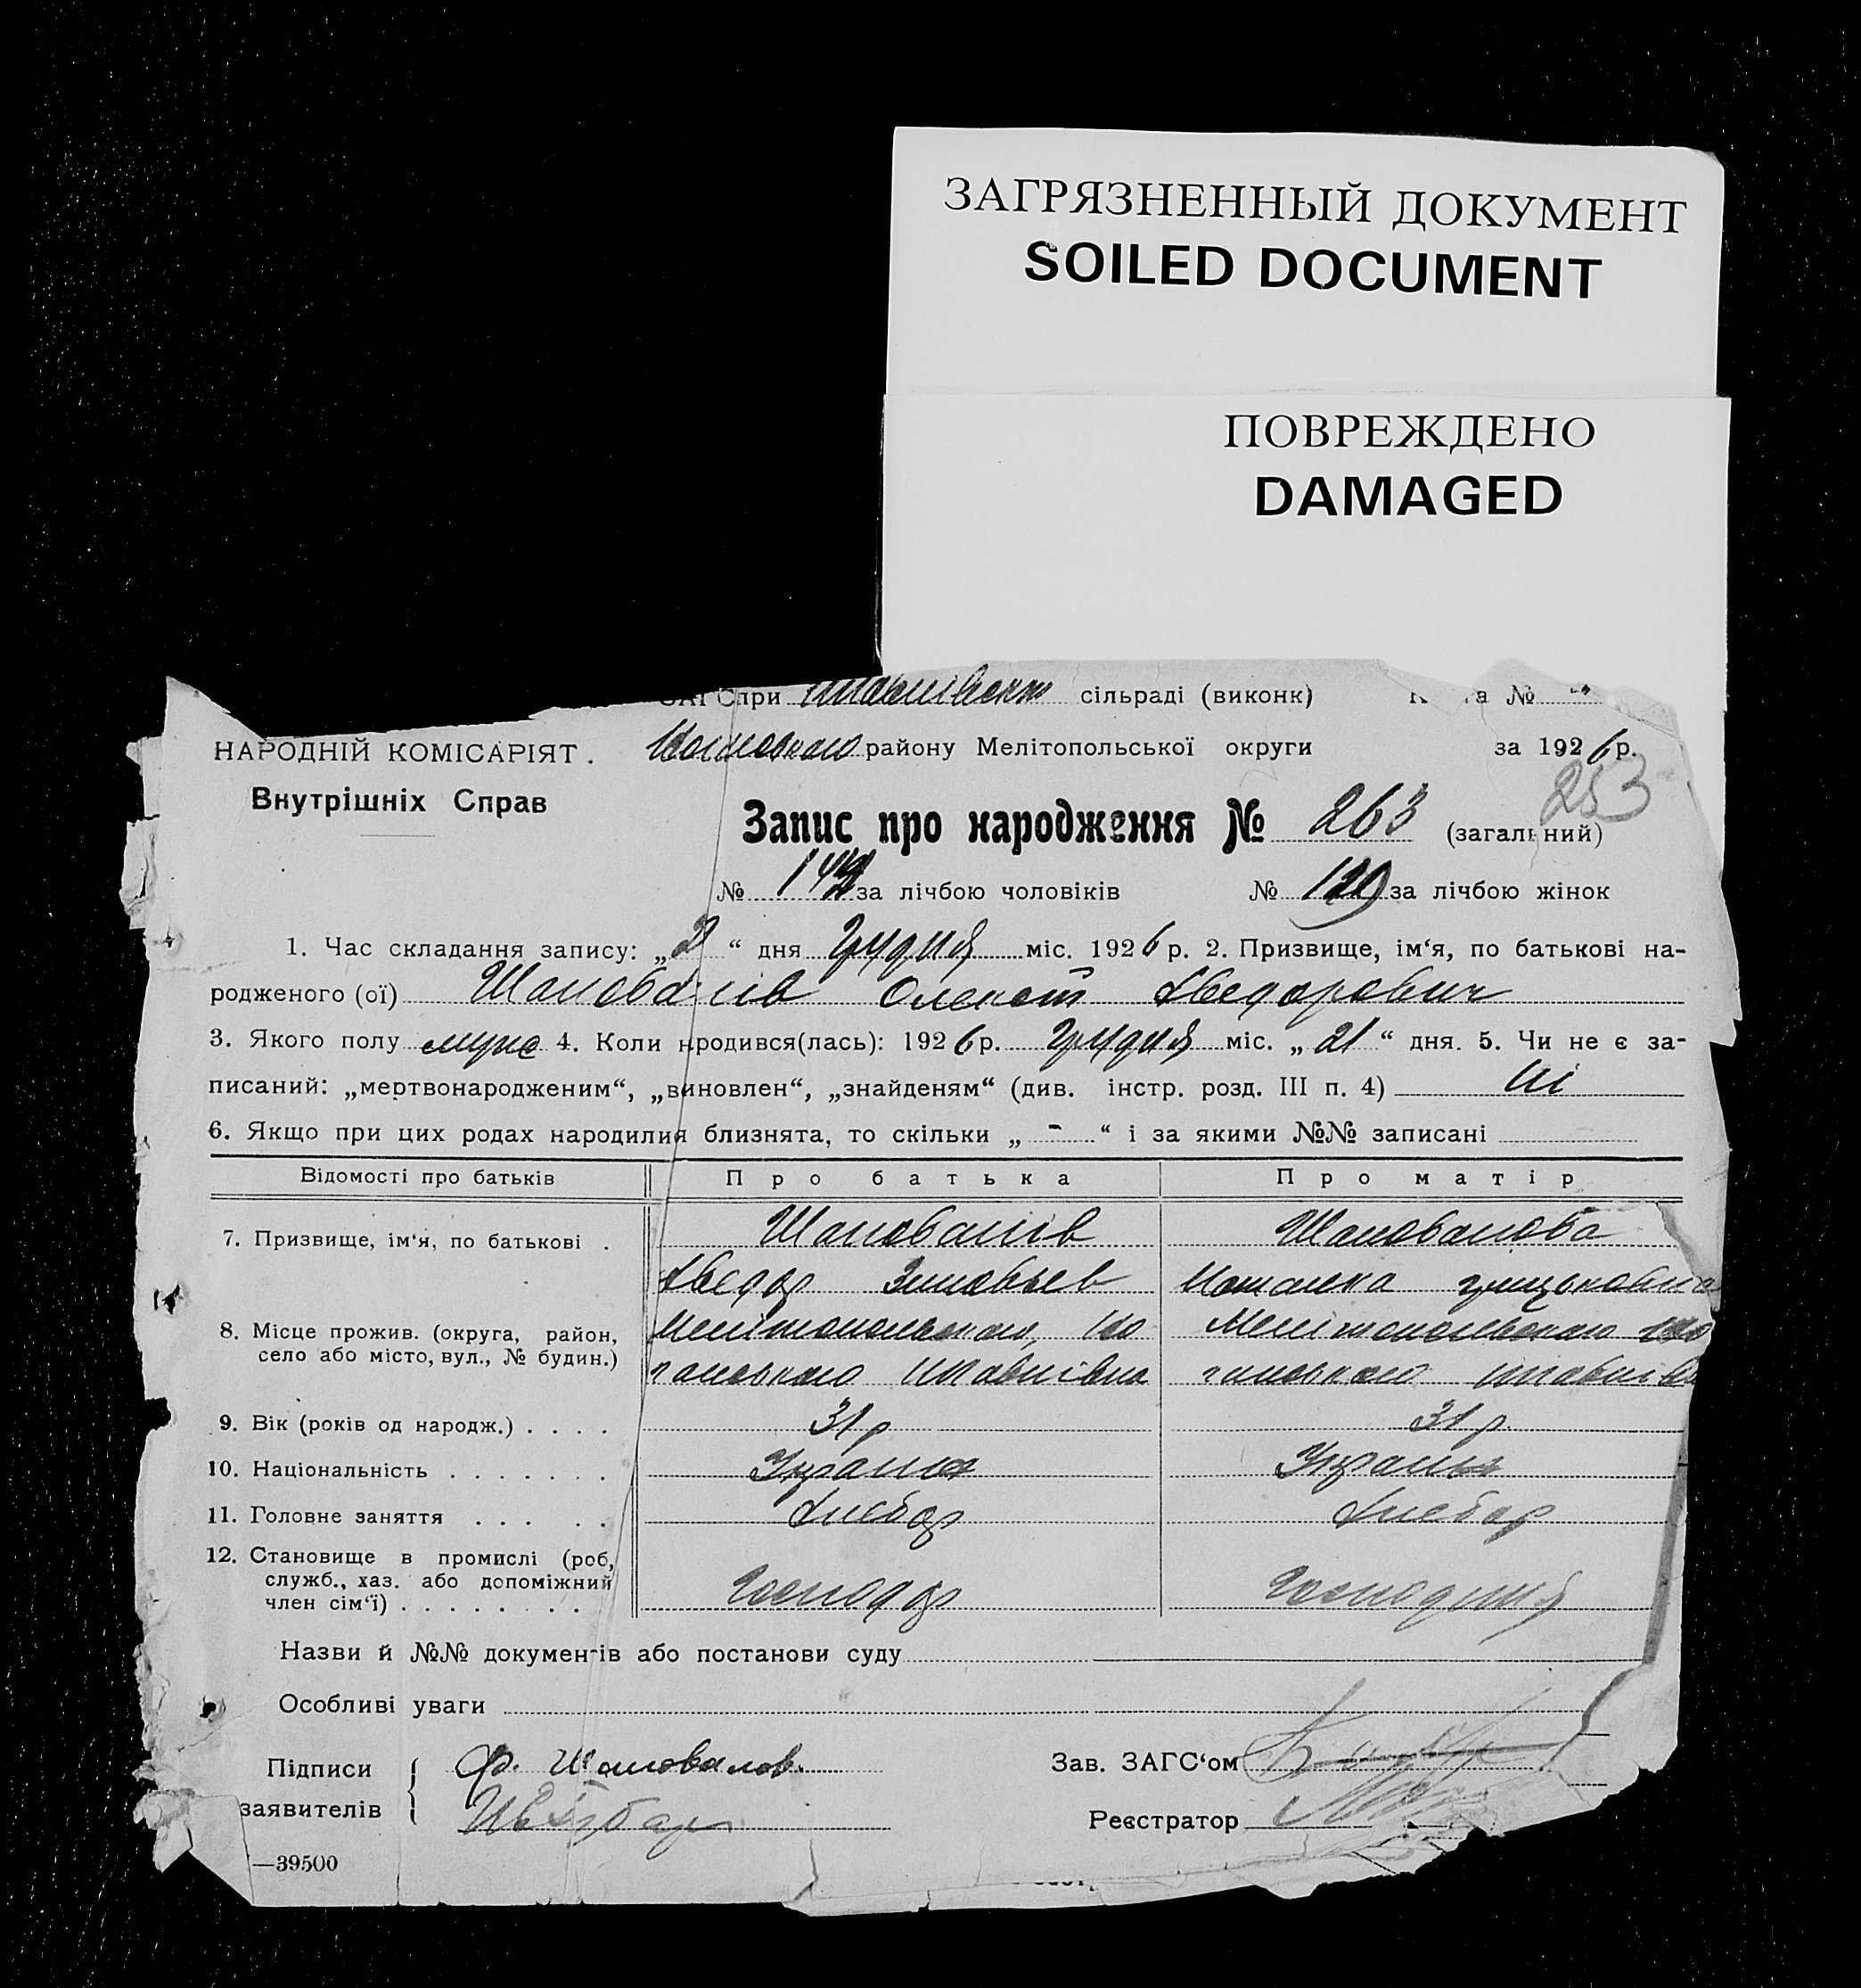 ЗАГРЯЗНЕННЫЙ ДОКУМЕНТ
SOILED DOCUMENT
ПОВРЕЖДЕНО
DAMAGED
ЗАГС при сільраді (виконк) №
НАРОДНІЙ КОМІСАРІЯТ. району Мелітопольської округи за 1926 р.
Внутрішніх Справ
253
Запис про народження № 263 (загальний)
№ за лічбою чоловіків № 120 за лічбою жінок
1. Час складання запису: „ “ дня Грудня міс. 1926 р. 2. Призвище, ім‘я, по батькові на-
родженого (ої) Шаповалів Олексій Хведорович
3. Якого полу муже 4. Коли нродився(лась): 1926 р. Грудня міс. „21“ дня. 5. Чи не є за-
писаний: „мертвонародженим“, „виновлен“, „знайденям“ (див. інстр. розд. III п. 4) Ні
6. Якщо при цих родах народилия близнята, то скільки „ - “ і за якими №№ записані
Відомості про батьків Про батька Про матір
7. Призвище, ім‘я, по батькові . Шаповалів Шаповалова
Хведор Зиновьев Наталка
8. Місце прожив. (округа, район, Мелітопольского, Мелітопольского
село або місто, вул., № будин.)
9. Вік (років од народж.) . . . . 31 р 31 р.
10. Національність . . . . . . . Україн Україн
11. Головне заняття . . . . . Хлебор Хлебор
12. Становище в промислі (роб,
служб., хаз. або допоміжний Господар Господиня
член сім‘ї) . . . . . . . .
Назви й №№ документів або постанови суду
Особливі уваги
Підписи Ф. Шаповалов. Зав. ЗАГС‘ом
заявителів Реєстратор
—39500